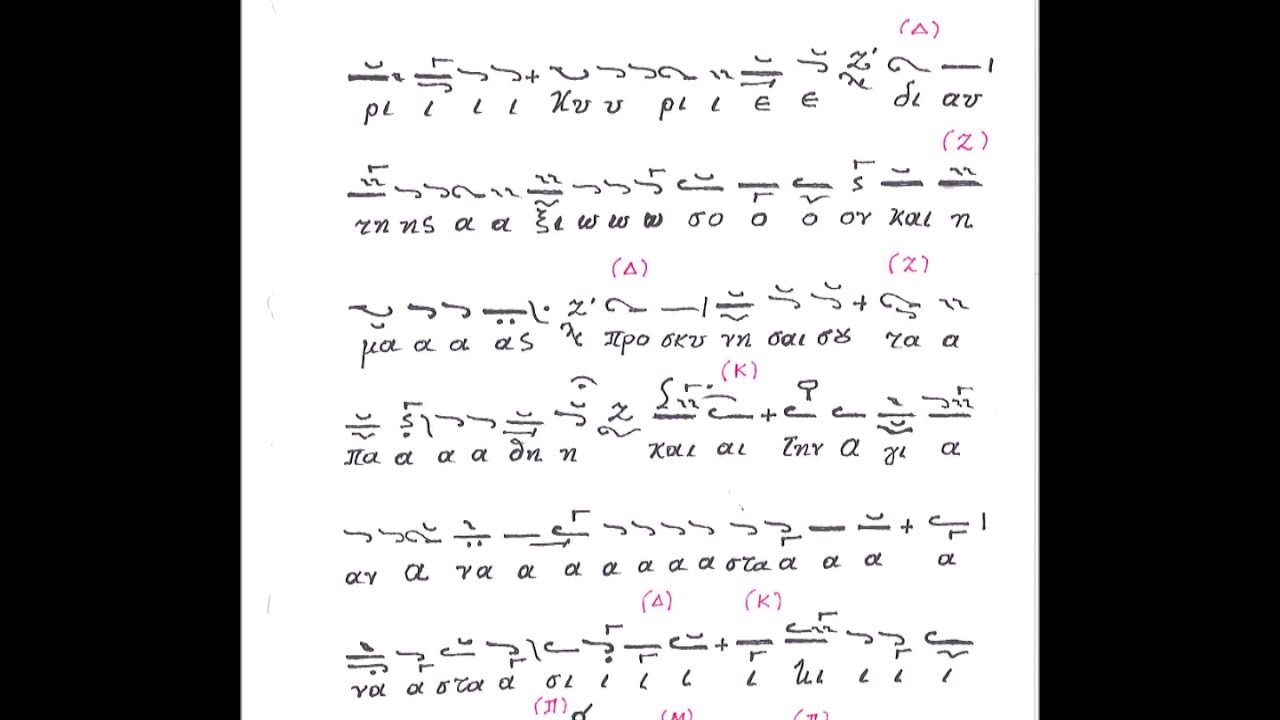 (Δ)
ρι ι ι ι Κυ υ ρι ι ε ε δι αυ
(Ζ)
τη ης α α ξι ω ω ω σο ο ο ον και η
(Δ) (Ζ)
μα α α ας προ σκυ νη σαι σȣ τα α
(Κ)
πα α α α θη η και αι την α γι α
αν α να α α α α α α στα α α α α
(Δ) (Κ)
να α στα α σι ι ι ι ι κι ι ι ι
(Π) (Μ) (Π)